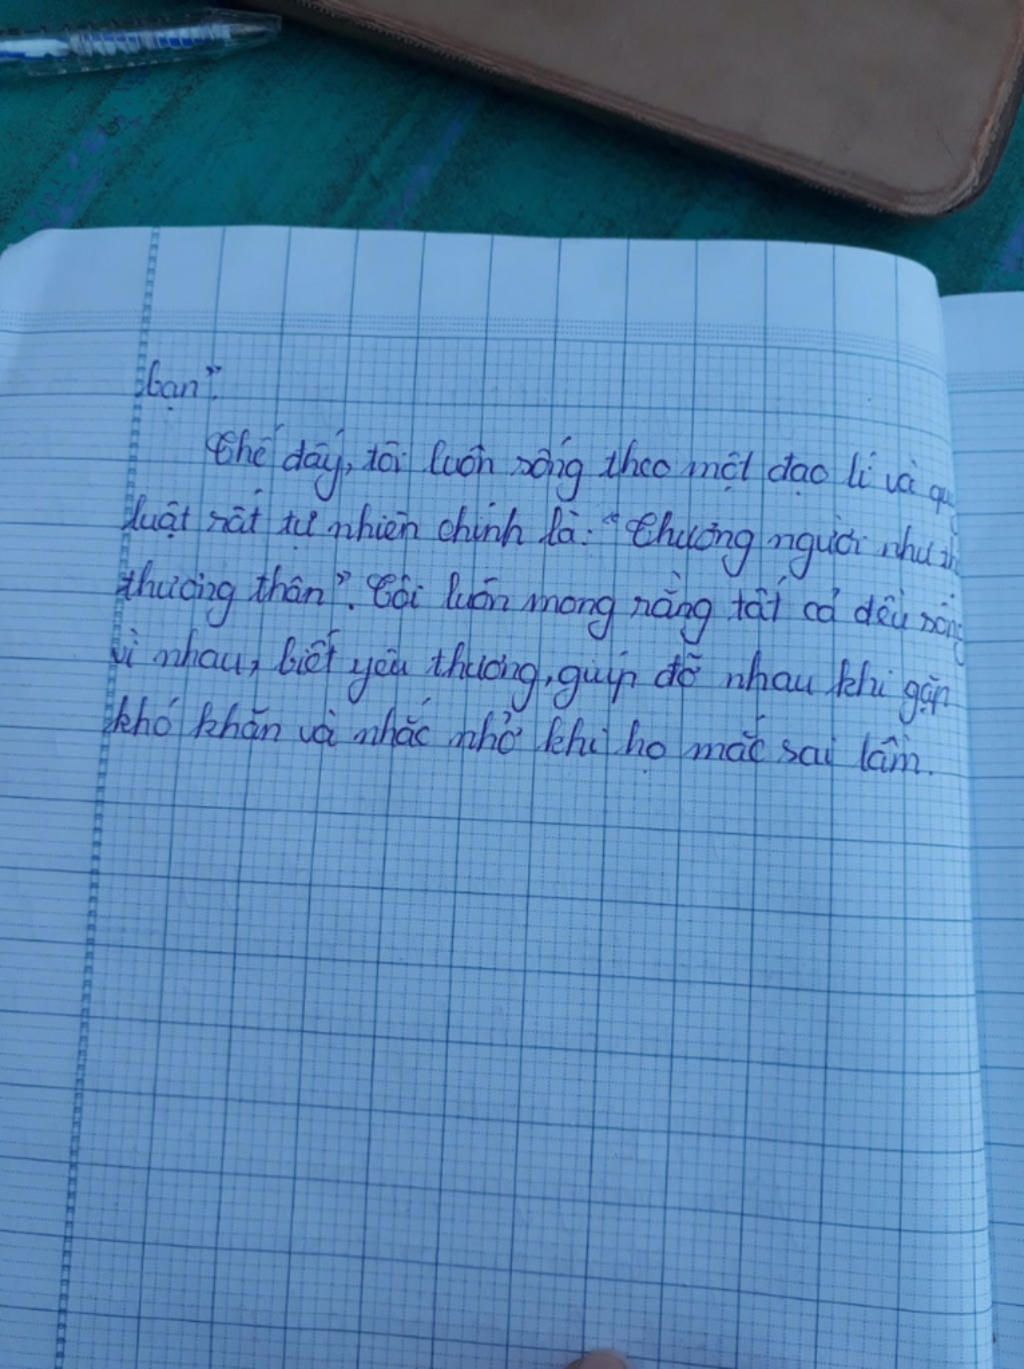 bạn".
Thế đấy, tôi luôn sống theo một đạo lí và
luật rất tự nhiên chính là: "Thương người như
thương thân". Tôi luôn mong rằng tất cả đều sống
vì nhau, biết yêu thương, giúp đỡ nhau khi gặp
khó khăn và nhắc nhở khi họ mắc sai lầm.